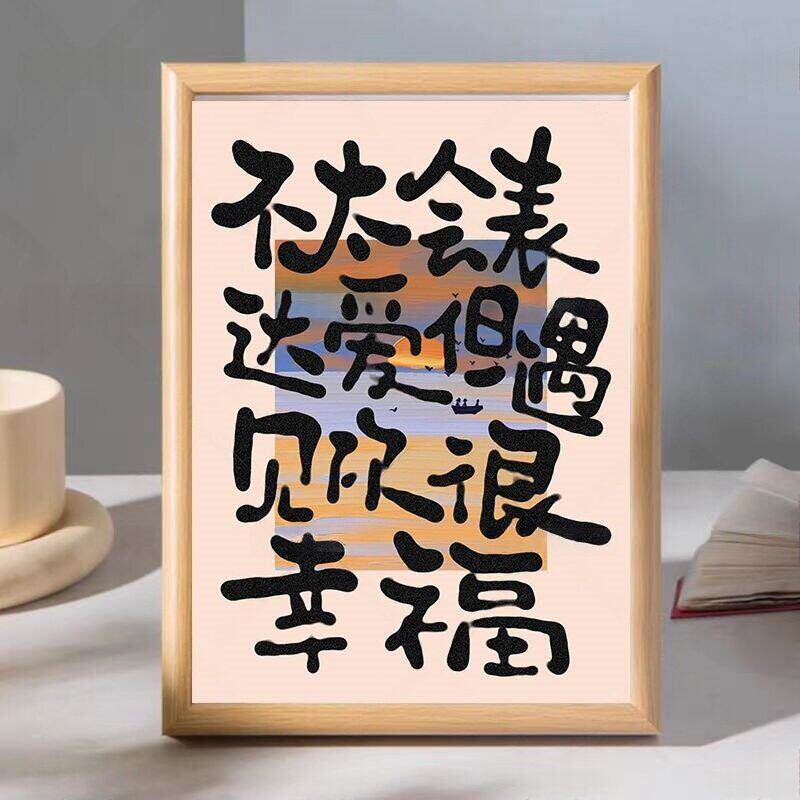 不太会表
达爱但遇
见你很
幸福